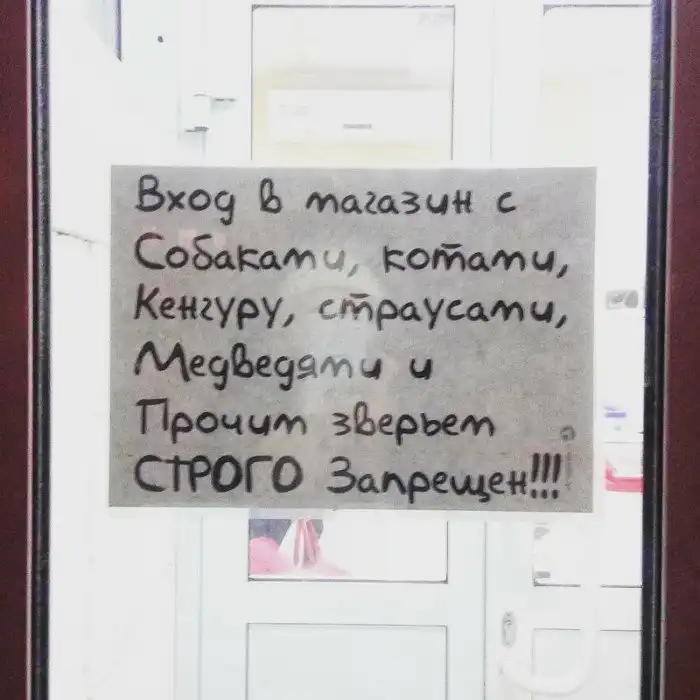 Вход в магазин с
Собаками, котами,
Кенгуру, страусами,
Медведями и
Прочим зверьем
СТРОГО Запрещен!!!